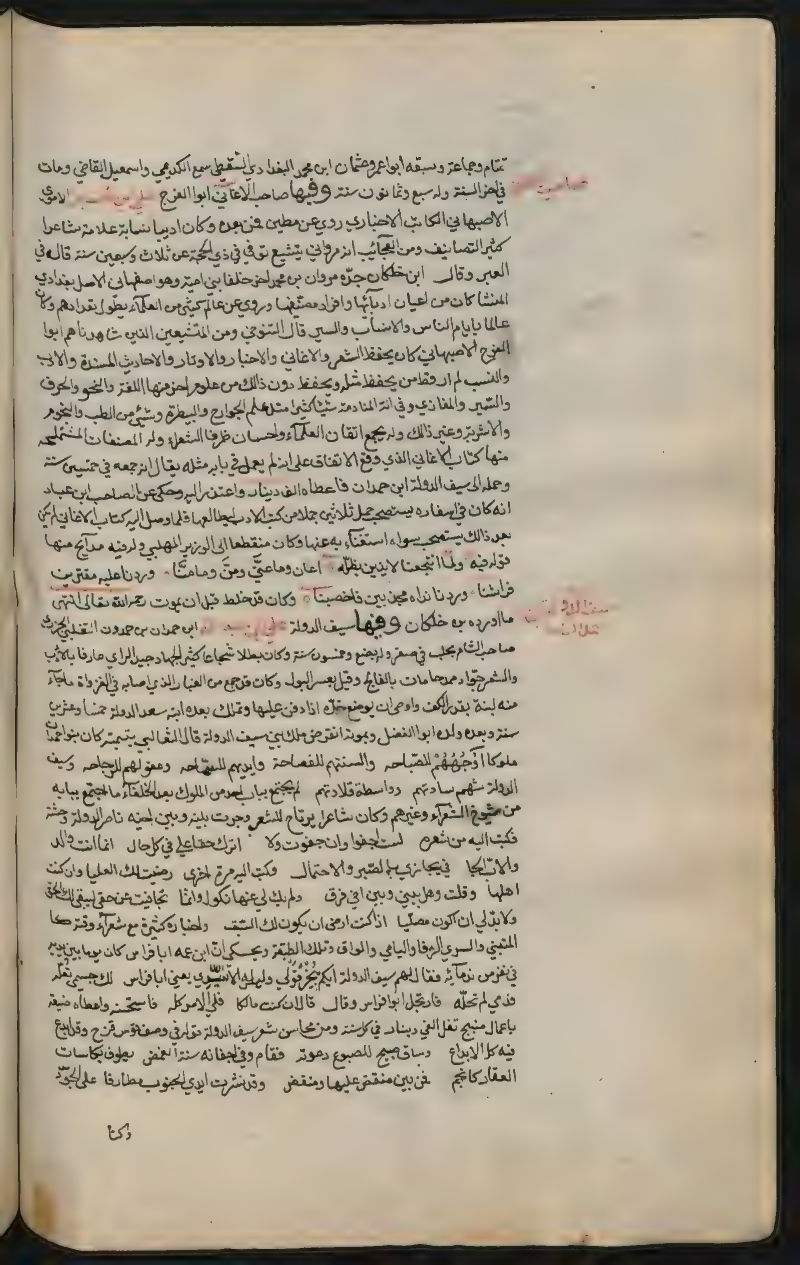 تمام وجماعة وسبقه ابو اعمر وعثمان ابن محمد البغدادي السقطي سمع الكديمي واسمعيل القاضي ومات
في اخر السنة وله سبع وثمانون سنة وفيها صاحب الاغاني ابوا الفرج علي بن الحسين الاموي
الاصبهاني الكاتب الاخباري روي عن مطين فمن بعده وكان اديبا نسابة علامة شاعرا
كثير التصانيف ومن العجائب انه مرواني يتشيع توفي في ذي الحجة عن ثلاث وسبعين سنة قاله في
العبر وقال ابن خلكان جده مروان بن محمد اخر خلفا بني امية وهو اصفهاني الاصل بغدادي
المنشا كان من اعيان ادبآئها وافراد مصنفيها وروي عن عالم كثير من العلمآء يطول تعدادهم وكان
عالما بايام الناس والانساب والسير قال التنوخي ومن المتشيعين الذين شاهدناهم ابوا
الفرج الاصبهاني كان يحفظ الشعر والاغاني والاخبار والاوتار والاحاديث المسندة والادب
والنسب لم ار قط من يحفظ مثله ويحفظ دون ذالك من علوم اخر منها اللغة والنحو والحرف
والسير والمغازي وفي الة المنادمة شيئا كثيرا مثل علم الجوارح والبيطرة وشيئ من الطب والنجوم
والاشربة وغير ذالك وله يجمع اتقان العلمآء واحسان ظرفا الشعراء وله المصنفات المستملحه
منها كتاب الاغاني الذي وقع الاتفاق على انه لم يعمل في بابه مثله يقال انه جمعه في خمسين سنة
وحمله الى سيف الدولة ابن حمدان فاعطاه الف دينار واعتذر اليه وحكى عن الصاحب ابن عباد
انه كان في اسفاره يستصحب حمل ثلاثين جملا من كتب الادب ليطالعها فلما وصل اليه كتاب الاغاني لم يكن
بعد ذالك يستصحب سواه استغنآء به عنها وكان منقطعا الى الوزير المهلبي وله فيه مدآيح منها
قوله فيه ولما انتجعنا لايذين بظله اعان وماعنّي ومنّ ومامنّا وردنا عليه مقترين
فراشنا وردنا نداه مجدبين فاخصبنا وكان قد خلط قبل ان يموت رحمه الله تعالى انتهى
ما اورده بن خلكان وفيها سيف الدولة علي بن عبد الله ابن حمدان بن حمدون التغلبي الجزري
صاحب الشام بحلب في صفر وله بضع وخمسون سنة وكان بطلا شجاعا كثير الجهاد جيد الراي عارفا بالادب
والشعر جوّاد ممدحا مات بالفالج وقيل بعسر البول وكان قد جمع من الغبار الذي اصابه في الغزواة ماجآء
منه لبنة بقدر الكف واوصى ان يوضع خدّه اذا دفن عليها وتملك بعده ابنه سعد الدولة خمسا وعشرين
سنة وبعده ولده ابوا الفضل وبموته انقرض ملك بني سيف الدولة قال الثعالبي يتيمته كان بنوا حمدان
ملوكا اوجُهُهُمْ للصّباحه والسنتهم للفصاحة وايديهم للسماحه وعقولهم للرجاحه وسيف
الدولة شهم سادتهم وواسطة قلادتهم لم يجتمع بباب احد من الملوك بعد الخلفآء ما اجتمع ببابه
من شيوخ الشعرآء وغيرهم وكان شاعرا يرتاح للشعر وجرت بلينه وبين اخيه ناصر الدولة وحشة
فكتب اليه من شعره لست اجفوا وان جفوت ولا اترك حقا علي في كل حال انما انت والد
والاب الجا في يجازي بالصبر والاحتمال وكتب اليه مرة اخرى رضيت لك العليا وان كنت
اهلها وقلت وهل بيني وبين اخي فرق ولم يك لي عنها نكول وانما تجافيت عن حقي ليبقى لك الحق
ولا بدّ لي ان اكون مصليا اذا كنت ارضى ان يكون لك السبق ولاخباره كثيرة مع شعرآء وقته كا
المتنبي والسري الرفا والنامي والواق وتلك الطبقة ويحكى انّ ابن عمه ابا فراس كان يوما بين يديه
في نفر من ندمآئه فقال لهم سيف الدولة ايكم يُجيز قَوْلي وليس له الا سيّدي يعني ابا فراس لك جسمي تعلّه
فدمي لم تحلّه فارتجل ابوا فراس وقال قال ان كنت مالكا فلي الامر كله فاستحسنه واعطاه ضيعة
باعمال منبج تغل الفي دينار في كل سنة ومن محاسن شعر سيف الدولة قوله في وصف قوس قزح وقد ابدع
فيه كل الابداع وساق صبيح للصبوح دعوته فقام وفي اجفانه سنة الغمض يطوف بكاسات
العقار كانجم فمن بين منقض عليها ومنفض وقد نشرت ايدي الجنوب مطارفا على الجوّ
دكنا
سيف الدولة